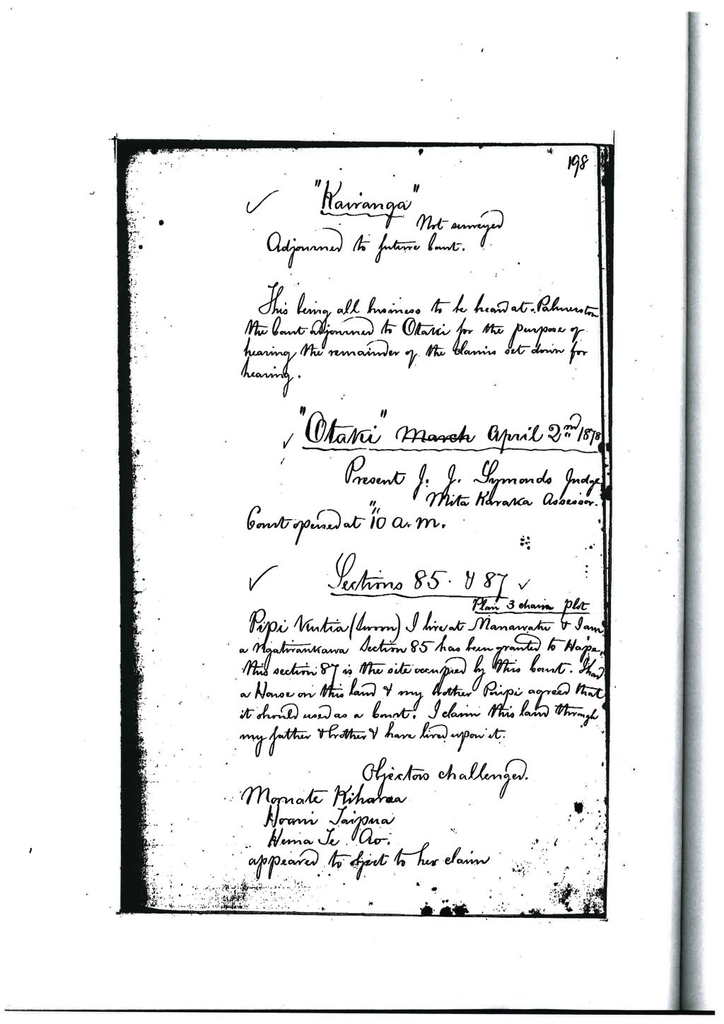 198
"Kairanga"
Not surveyed
Adjourned to future Court.
This being all business to be heard at Palmerston
the Court adjourned to Otaki for the purpose of
hearing the remainder of the claims set down for
hearing.
"Otaki" March April 2nd 1878
Present J. J. Symonds Judge
Mita Karaka Assessor.
Court opened at "10 A.M.
Sections 85. & 87
Plan 3 chains plot
Pipi (Sworn) I live at Manawatu & I am
a Ngatiraukawa Section 85 has been granted to Hape,
this section 87 is the site occupied by this Court. I had
a House on this land & my brother agreed that
it should used as a Court. I claim this land through
my father & brother & have lived upon it.
Objectors challenged.
Kiharoa
Hoani Taipua
Hema Te Ao.
appeared to object to her claim